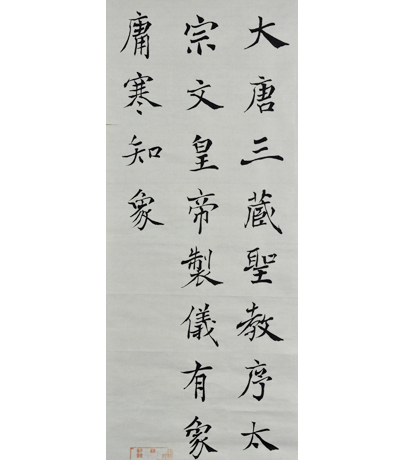 大唐三蔵聖教序太
宗文皇帝製儀有象
庸寒知象